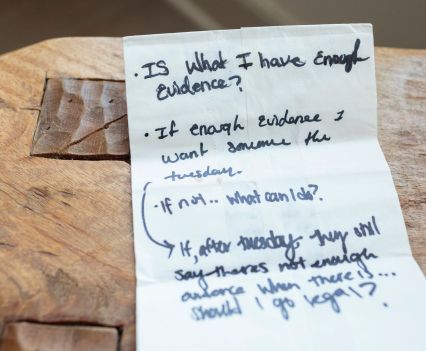 · Is What I have Enough
Evidence?
· If enough Evidence I
want someone the
tuesday.
· If not... what can I do?
If, after tuesday they still
say theres not enough
when there is...
should I go legal?